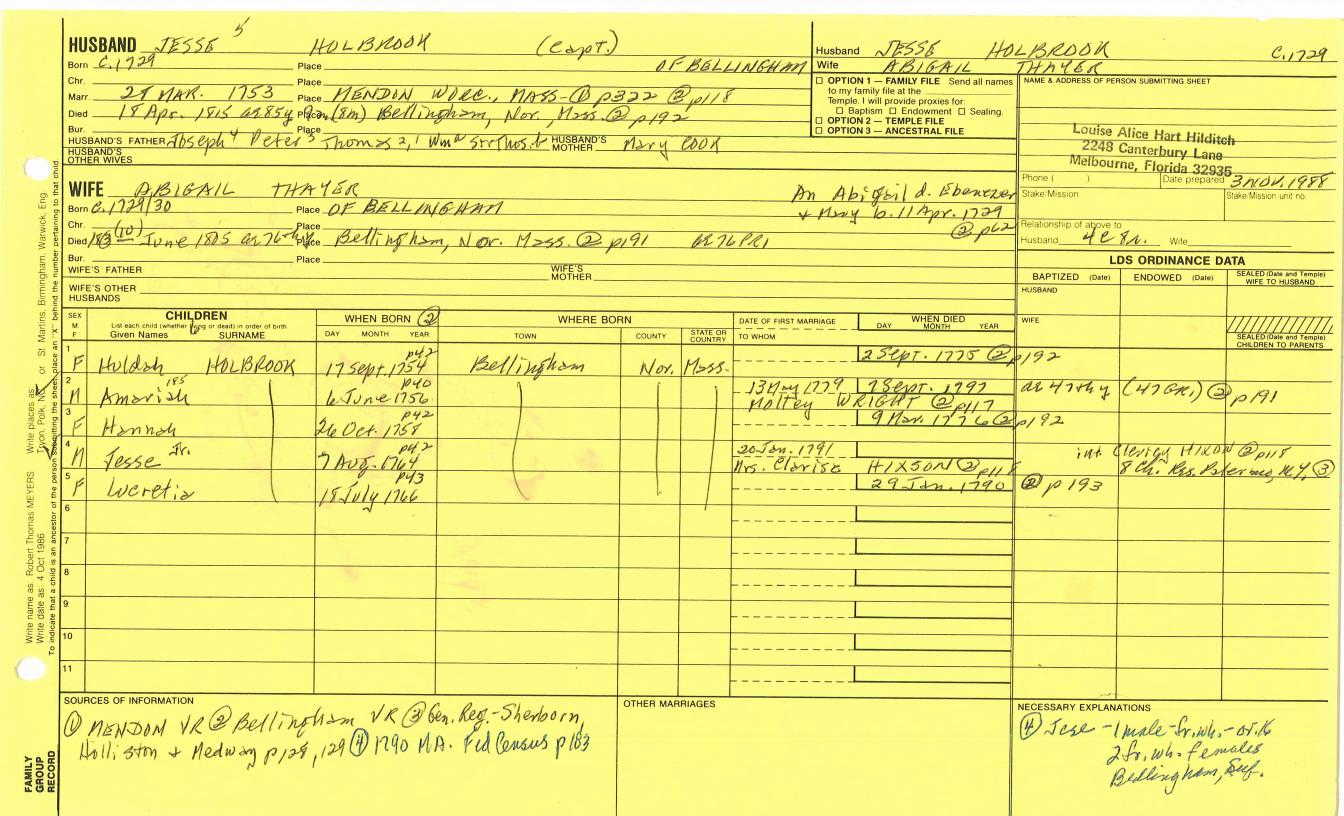 HUSBAND JESSE 5 HOLBROOK (Capt.)
Born c.1729 Place OF BELLINGHAM
Chr. Place
Marr. 28 MAR. 1753 Place MENDON WORC., MASS-① p322 ② p118
Died 18 Apr. 1815 ae 85y 9m (8m) Place Bellingham, Nor. Mass. ② p192
Bur. Place
HUSBAND'S FATHER Joseph 4 Peter 3 Thomas 2, 1 HUSBAND'S MOTHER Mary COOK
HUSBAND'S OTHER WIVES
Husband JESSE HOLBROOK C.1729
Wife ABIGAIL THAYER
☐ OPTION 1 — FAMILY FILE Send all names
to my family file at the
Temple. I will provide proxies for
☐ Baptism ☐ Endowment ☐ Sealing
☐ OPTION 2 — TEMPLE FILE
☐ OPTION 3 — ANCESTRAL FILE
NAME & ADDRESS OF PERSON SUBMITTING SHEET
Louise Alice Hart Hilditch
2248 Canterbury Lane
Melbourne, Florida 32935
Phone ( ) Date prepared 3 NOV. 1988
Stake/Mission Stake/Mission unit no.
Relationship of above to
Husband 4c 8r. Wife
WIFE ABIGAIL THAYER An Abigail d. Ebenezer
Born c.1729/30 Place OF BELLINGHAM & Mary b. 11 Apr. 1729
Chr. (10) Place ② p62
Died June 1805 ae 76 thy Place Bellingham, Nor. Mass. ② p191 ae 76 PR1
Bur. Place
WIFE'S FATHER WIFE'S MOTHER
WIFE'S OTHER HUSBANDS
LDS ORDINANCE DATA
BAPTIZED (Date) ENDOWED (Date) SEALED (Date and Temple) WIFE TO HUSBAND
HUSBAND
WIFE
SEALED (Date and Temple) CHILDREN TO PARENTS
SEX M F CHILDREN
List each child (whether living or dead) in order of birth
Given Names SURNAME
WHEN BORN ② DAY MONTH YEAR
WHERE BORN TOWN COUNTY STATE OR COUNTRY
DATE OF FIRST MARRIAGE TO WHOM
WHEN DIED DAY MONTH YEAR
1 F Huldah HOLBROOK 17 Sept. 1754 p42 Bellingham Nor. Mass. 2 Sept. 1775 ② p192
2 M Amariah 6 June 1756 p40 13 May 1779 7 Sept. 1797 ae 47thy (47 GR1) ② p191
Molley WRIGHT ② p117
3 F Hannah 26 Oct. 1758 p42 9 Mar. 1776 ② p192
4 M Jesse Jr. 7 Aug. 1764 p42 20 Jan. 1791 int. Clerisy HIXON ② p118
Mrs. Clarisa HIXSON ② p118 8 Ch. Res. N.Y. ③
5 F Lucretia 18 July 1766 p43 29 Jan. 1790 ② p193
6
7
8
9
10
11
SOURCES OF INFORMATION
① MENDON VR ② Bellingham VR ③ Gen. Reg.-Sherborn,
Holliston & Medway p128, 129 ④ 1790 MA. Fed Census p183
OTHER MARRIAGES
NECESSARY EXPLANATIONS
④ Jese - 1 male - fr. wh. - ov. 16
2 fr. wh. females
Bellingham, Suf.
Write name as: Robert Thomas/MEYERS Write places as: Tryon, Polk, NC or St. Martins, Birmingham, Warwick, Eng
Write date as: 4 Oct 1986
To indicate that a child is an ancestor of the person submitting the sheet, place an "X" behind the number pertaining to that child
FAMILY GROUP RECORD